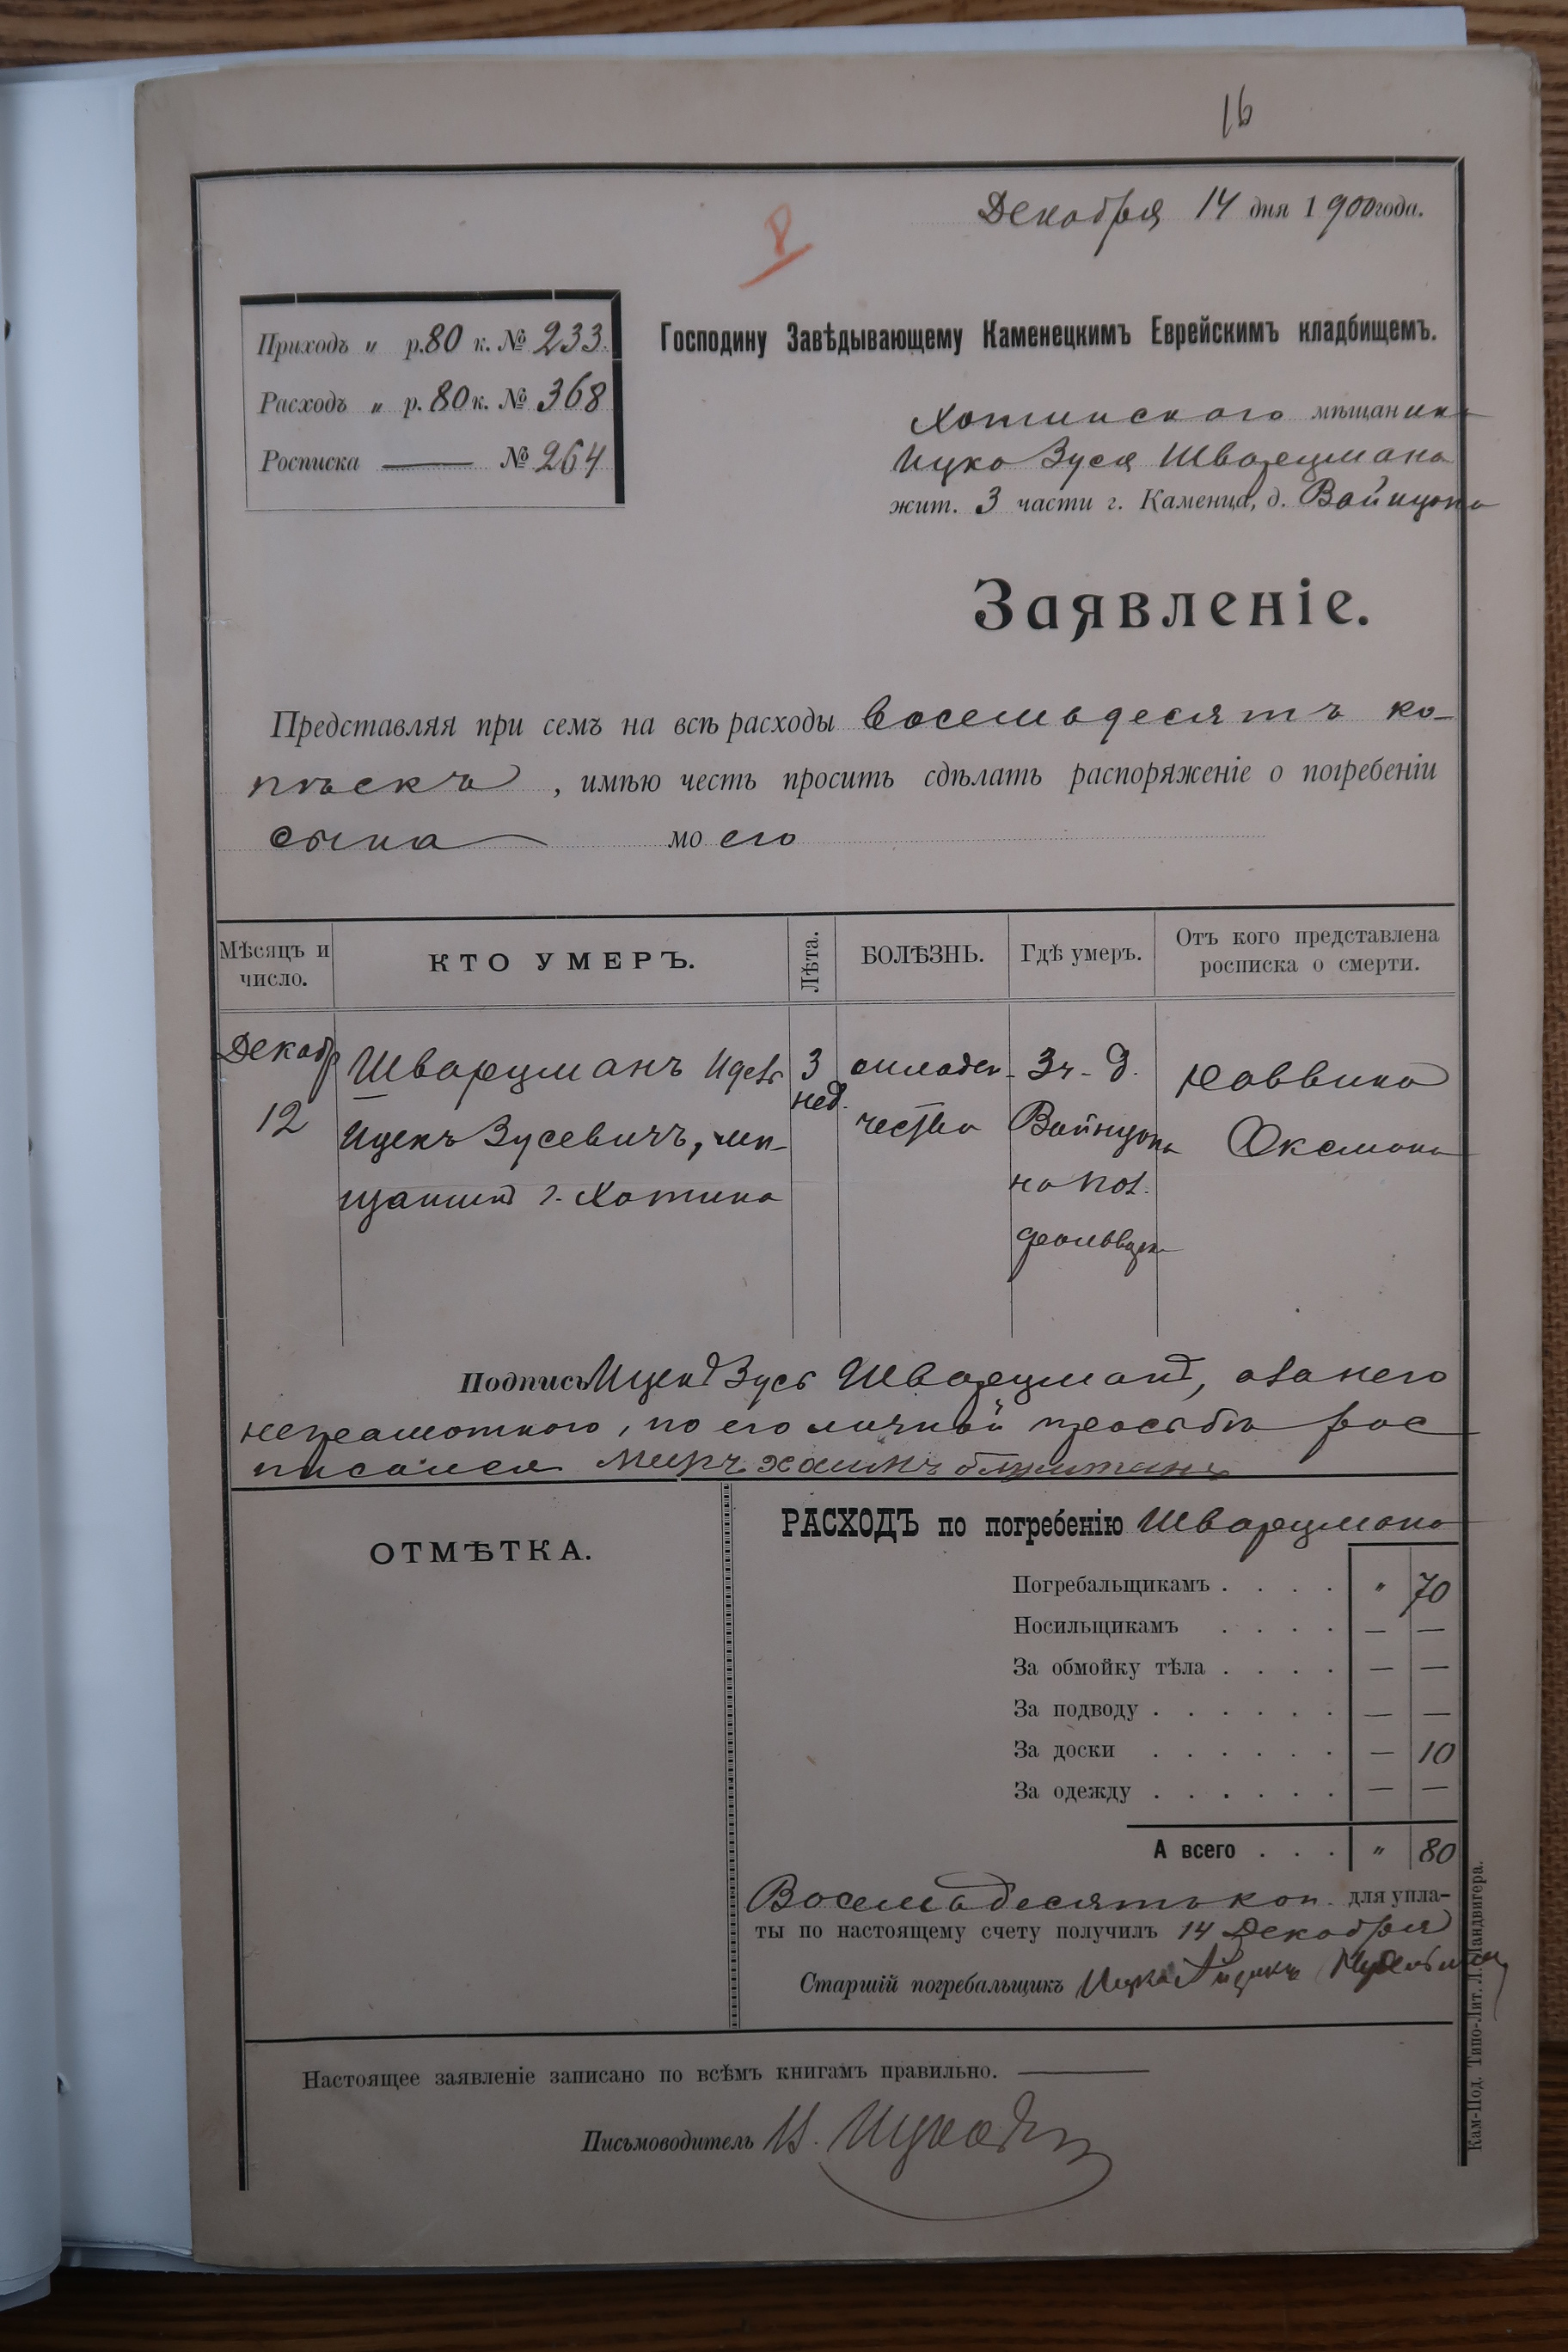 16
Декабря 14 дня 1900 года.
8
Приходъ " р. 80 к. № 233.
Расходъ " р. 80 к. № 368
Росписка — № 264
Господину Завѣдывающему Каменецкимъ Еврейскимъ кладбищемъ.
Хотинского мѣщанина
Ицко Зуся Шварцмана
жит. 3 части г. Каменца, д. Вайнцона
Заявленіе.
Представляя при семъ на всѣ расходы восемьдесятъ ко-
пѣекъ, имѣю честь просить сдѣлать распоряженіе о погребеніи
сына моего
Мѣсяцъ и число.
КТО УМЕРЪ.
Лѣта.
БОЛѢЗНЬ.
Гдѣ умеръ.
Отъ кого представлена росписка о смерти.
Декабр 12
Шварцманъ
Ицекъ Зусевичъ, мѣ-
щанинъ г. Хотина
3 нед.
младен-
чества
3 ч. д.
Вайнцона
на пол.
фольварк
Раввина
Оксмана
Подпись Ицекъ Зусь Шварцманъ, а за него
неграмотного, по его личной просьбѣ рос
писался Меиръ Хаимъ
ОТМѢТКА.
РАСХОДЪ по погребенію Шварцмана
Погребальщикамъ . . . . " 70
Носильщикамъ . . . . — —
За обмойку тѣла . . . . — —
За подводу . . . . . . — —
За доски . . . . . . — 10
За одежду . . . . . . — —
А всего . . . " 80
Восемьдесятъ коп. для упла-
ты по настоящему счету получилъ 14 Декабря
Старшій погребальщикъ Ицко
Настоящее заявленіе записано по всѣмъ книгамъ правильно. —
Письмоводитель И.
Кам-Под. Типо-Лит. Л. Ландвигера.